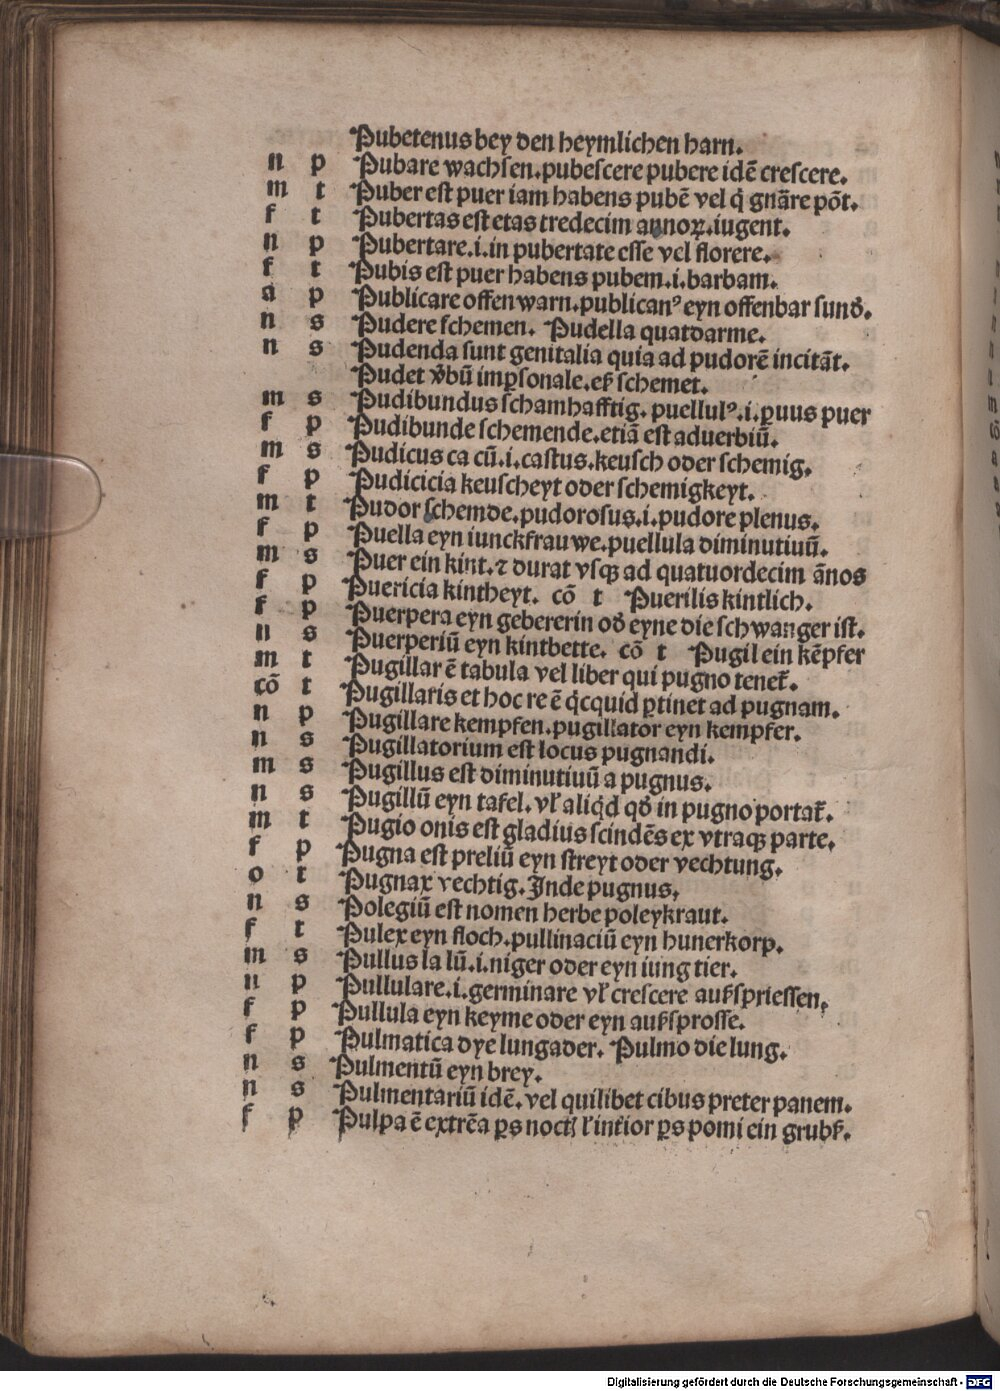 Pubetenus bey den heymlichen harn.
n p Pubare wachsen.pubescere pubere idē crescere.
m t Puber est puer iam habens pubē vel q̇ gnāre pōt.
f t Pubertas est etas tredecim annoꝝ.iugent.
n p Pubertare.i.in pubertate esse vel florere.
f t Pubis est puer habens pubem.i.barbam.
a p Publicare offen warn.publicanꝰ eyn offenbar sund̓.
n s Pudere schemen. Pudella quatdarme.
n s Pudenda sunt genitalia quia ad pudorē incitāt.
Pudet v̓bū imꝑsonale.eß schemet.
m s Pudibundus schamhafftig. puellulꝰ.i.ꝑuus puer
f p Pudibunde schemende.etiā est aduerbiū.
m s Pudicus ca cū.i.castus.keusch oder schemig.
f p Pudicicia keuscheyt oder schemigkeyt.
m t Pudor schemde.pudorosus.i.pudore plenus.
f p Puella eyn iunckfrauwe.puellula diminutiuū.
m s Puer ein kint.⁊ durat vsqꝫ ad quatuordecim ānos
f p Puericia kintheyt. cō t Puerilis kintlich.
f p Puerpera eyn gebererin od̓ eyne die schwanger ist.
n s Puerperiū eyn kintbette. cō t Pugil ein kēpfer
m t Pugillar ē tabula vel liber qui pugno teneť.
cō t Pugillaris et hoc re ē q̇cquid ꝑtinet ad pugnam.
n p Pugillare kempfen.pugillator eyn kempfer.
n s Pugillatorium est locus pugnandi.
m s Pugillus est diminutiuū a pugnus.
n s Pugillū eyn tafel.vł aliq̇d qd̓ in pugno portať.
m t Pugio onis est gladius scindēs ex vtraqꝫ parte.
f p Pugna est preliū eyn streyt oder vechtung.
o t Pugnax vechtig. Inde pugnus.
n s Polegiū est nomen herbe poleykraut.
f t Pulex eyn floch.pullinaciū eyn hunerkorp.
m s Pullus la lū.i.niger oder eyn iung tier.
n p Pullulare.i.germinare vł crescere außspriessen.
f p Pullula eyn keyme oder eyn außsprosse.
f p Pulmatica dye lungader. Pulmo die lung.
n s Pulmentū eyn brey.
n s Pulmentariū idē.vel quilibet cibus preter panem.
f p Pulpa ē extrēa ꝑs ł int̓ior ꝑs pomi ein grubß.